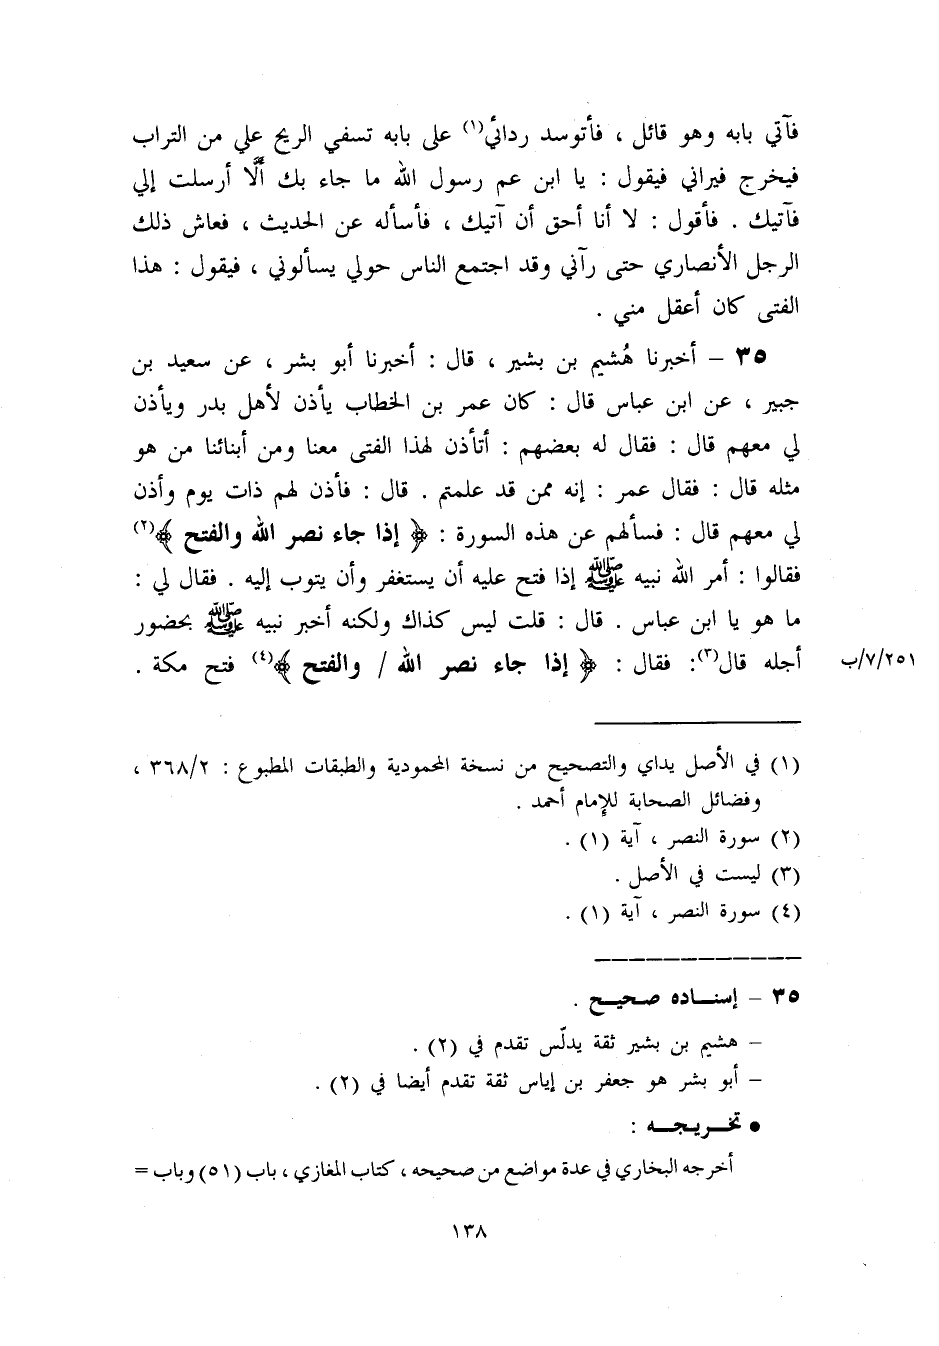 فآتي بابه وهو قائل ، فأتوسد ردائي(١) على بابه تسفي الريح علي من التراب
فيخرج فيراني فيقول : يا ابن عم رسول الله ما جاء بك ألّا أرسلت إلي
فآتيك . فأقول : لا أنا أحق أن آتيك ، فأسأله عن الحديث ، فعاش ذلك
الرجل الأنصاري حتى رآني وقد اجتمع الناس حولي يسألوني ، فيقول : هذا
الفتى كان أعقل مني .
٣٥ – أخبرنا هُشيم بن بشير ، قال : أخبرنا أبو بشر ، عن سعيد بن
جبير ، عن ابن عباس قال : كان عمر بن الخطاب يأذن لأهل بدر ويأذن
لي معهم قال : فقال له بعضهم : أتأذن لهذا الفتى معنا ومن أبنائنا من هو
مثله قال : فقال عمر : إنه ممن قد علمتم . قال : فأذن لهم ذات يوم وأذن
لي معهم قال : فسألهم عن هذه السورة : ﴿ إذا جاء نصر الله والفتح ﴾(٢)
فقالوا : أمر الله نبيه ﷺ إذا فتح عليه أن يستغفر وأن يتوب إليه . فقال لي :
ما هو يا ابن عباس . قال : قلت ليس كذاك ولكنه أخبر نبيه ﷺ بحضور
أجله قال(٣): فقال : ﴿ إذا جاء نصر الله / والفتح ﴾(٤) فتح مكة .
٧/٢٥١/ب
(١) في الأصل يداي والتصحيح من نسخة المحمودية والطبقات المطبوع : ٣٦٨/٢ ،
وفضائل الصحابة للإمام أحمد .
(٢) سورة النصر ، آية (١) .
(٣) ليست في الأصل .
(٤) سورة النصر ، آية (١) .
٣٥ – إسناده صحيح .
– هشيم بن بشير ثقة يدلّس تقدم في (٢) .
– أبو بشر هو جعفر بن إياس ثقة تقدم أيضا في (٢) .
● تخريجه :
أخرجه البخاري في عدة مواضع من صحيحه ، كتاب المغازي ، باب (٥١) وباب =
١٣٨